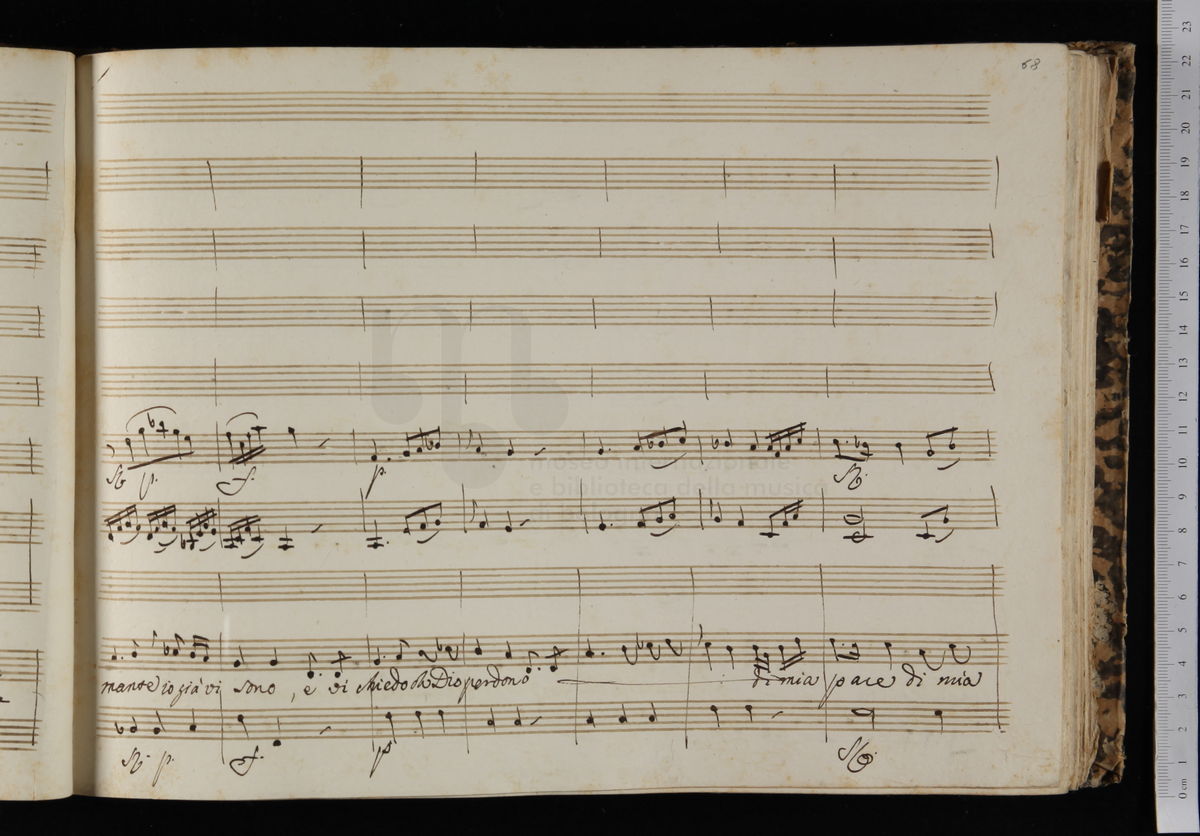 68
museo internazionale
e biblioteca della musica
p.
f.
p.
mante io già vi sono, e vi chiedo oh Dio perdono di mia pace di mia
p.
f.
p
23
22
21
20
19
18
17
16
15
14
13
12
11
10
9
8
7
6
5
4
3
2
1
0 cm